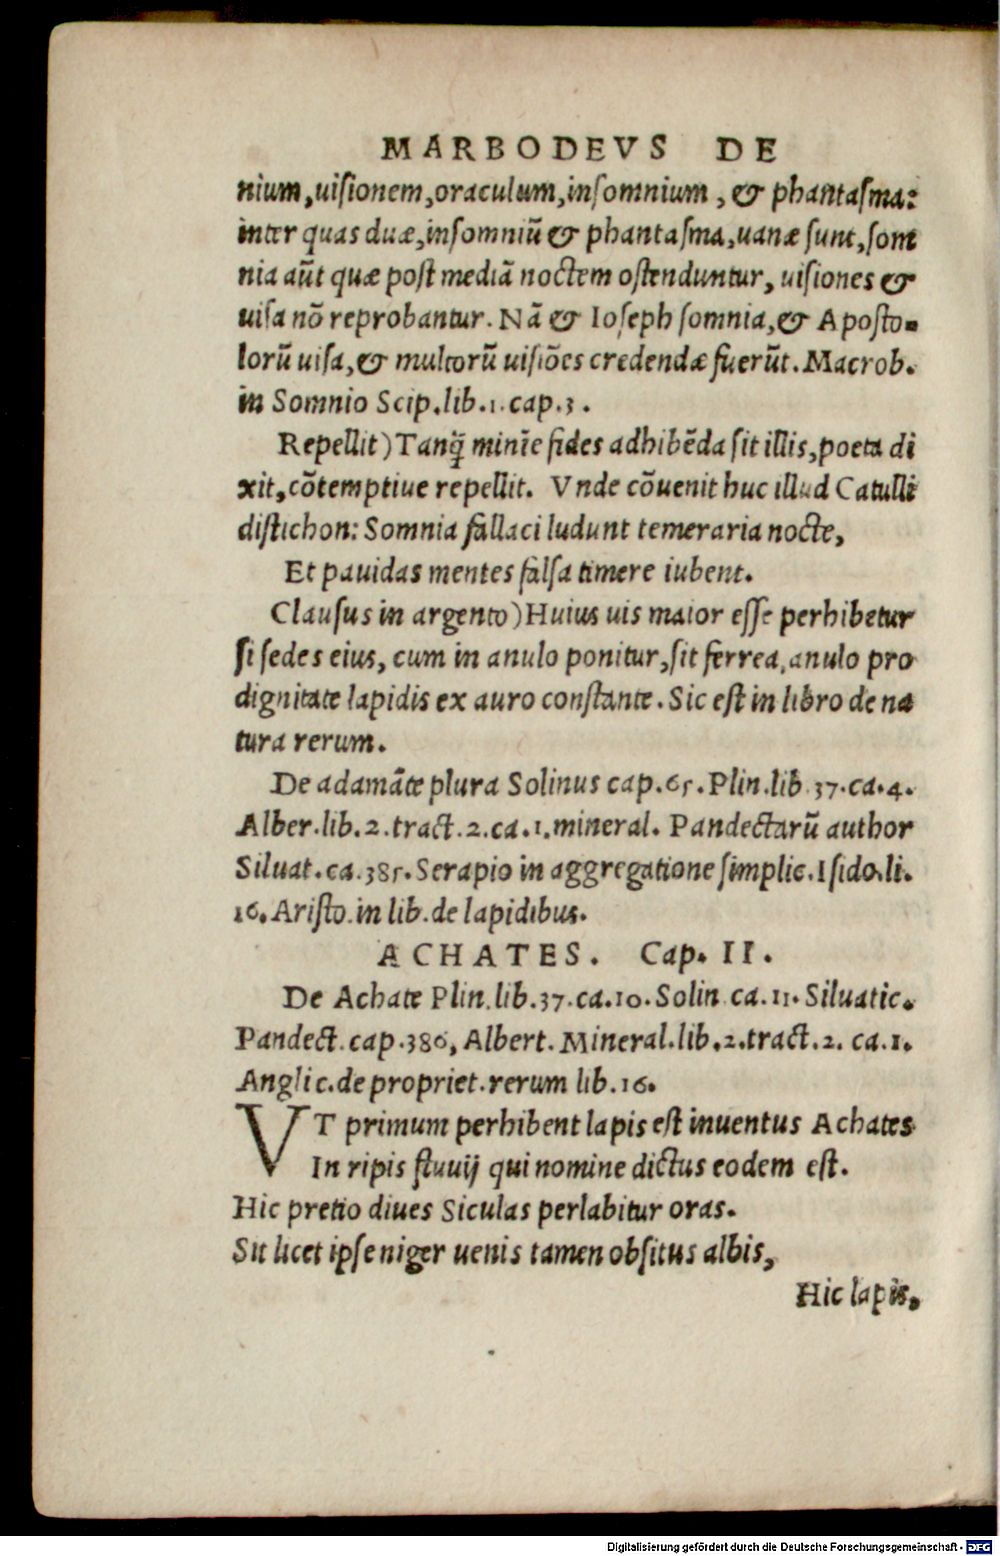 MARBODEVS DE
nium,uiſionem,oraculum,inſomnium , & phantaſma:
inter quas duæ,inſomniũ & phantaſma,uanæ ſunt,ſom
nia aũt quæ poſt mediã noctem oſtenduntur, uiſiones &
uiſa nõ reprobantur. Nã & Ioſeph ſomnia,& Apoſto-
lorũ uiſa,& multorũ uiſiões credendæ fuerũt. Macrob.
in Somnio Scip.lib.1.cap.3.
Repellit)Tanq̃ minĩe fides adhibẽda ſit illis,poeta di
xit,cõtemptiue repellit. Vnde cõuenit huc illud Catulli
diſtichon: Somnia fallaci ludunt temeraria nocte,
Et pauidas mentes falſa timere iubent.
Clauſus in argento)Huius uis maior eſſe perhibetur
ſi ſedes eius, cum in anulo ponitur,ſit ferrea,anulo pro
dignitate lapidis ex auro conſtante. Sic eſt in libro de na
tura rerum.
De adamãte plura Solinus cap.65. Plin.lib.37.ca.4.
Alber.lib.2.tract.2.ca.1.mineral. Pandectarũ author
Siluat.ca.385.Serapio in aggregatione ſimplic.Iſido.li.
16. Ariſto.in lib.de lapidibus.
ACHATES. Cap. II.
De Achate Plin.lib.37.ca.10.Solin.ca.11.Siluatic.
Pandect.cap.386, Albert. Mineral.lib.2.tract.2. ca.1.
Anglic.de propriet.rerum lib.16.
VT primum perhibent lapis eſt inuentus Achates
In ripis fluuij qui nomine dictus eodem eſt.
Hic pretio diues Siculas perlabitur oras.
Sit licet ipſe niger uenis tamen obſitus albis,
Hic lapis.
Digitalisierung gefördert durch die Deutsche Forschungsgemeinschaft - DFG